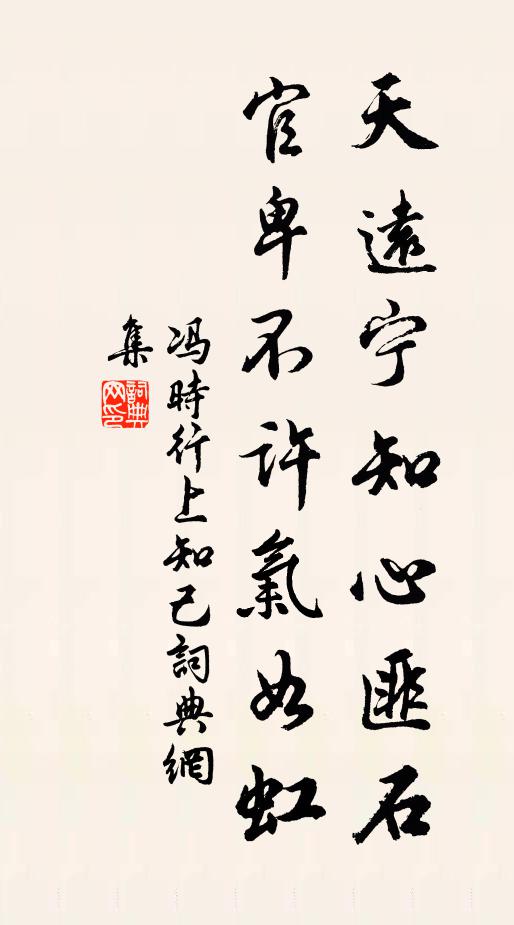 天遠宁知心匪石
官卑不許氣如虹
冯時行上知己詞典網
集
詞典
网印